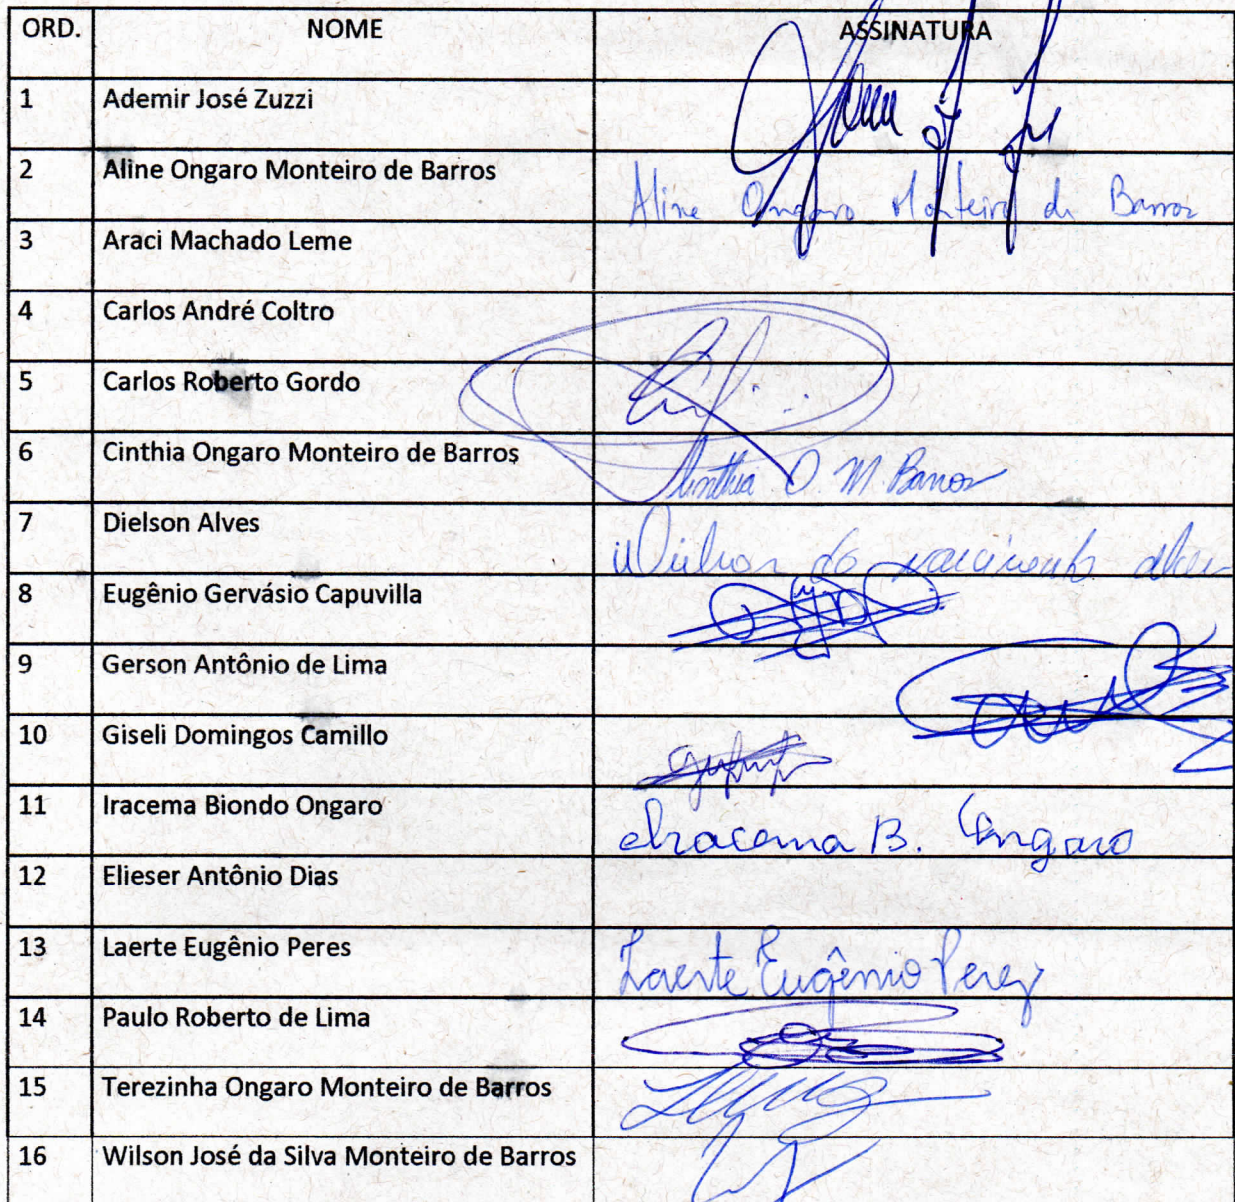 ORD. NOME ASSINATURA
1 Ademir José Zuzzi
2 Aline Ongaro Monteiro de Barros Aline Ongaro Monteiro de Barros
3 Araci Machado Leme
4 Carlos André Coltro
5 Carlos Roberto Gordo
6 Cinthia Ongaro Monteiro de Barros Cinthia O M Barros
7 Dielson Alves do
8 Eugênio Gervásio Capuvilla
9 Gerson Antônio de Lima
10 Giseli Domingos Camillo
11 Iracema Biondo Ongaro Iracema B. Ongaro
12 Elieser Antônio Dias
13 Laerte Eugênio Peres Laerte Eugênio Perez
14 Paulo Roberto de Lima
15 Terezinha Ongaro Monteiro de Barros
16 Wilson José da Silva Monteiro de Barros